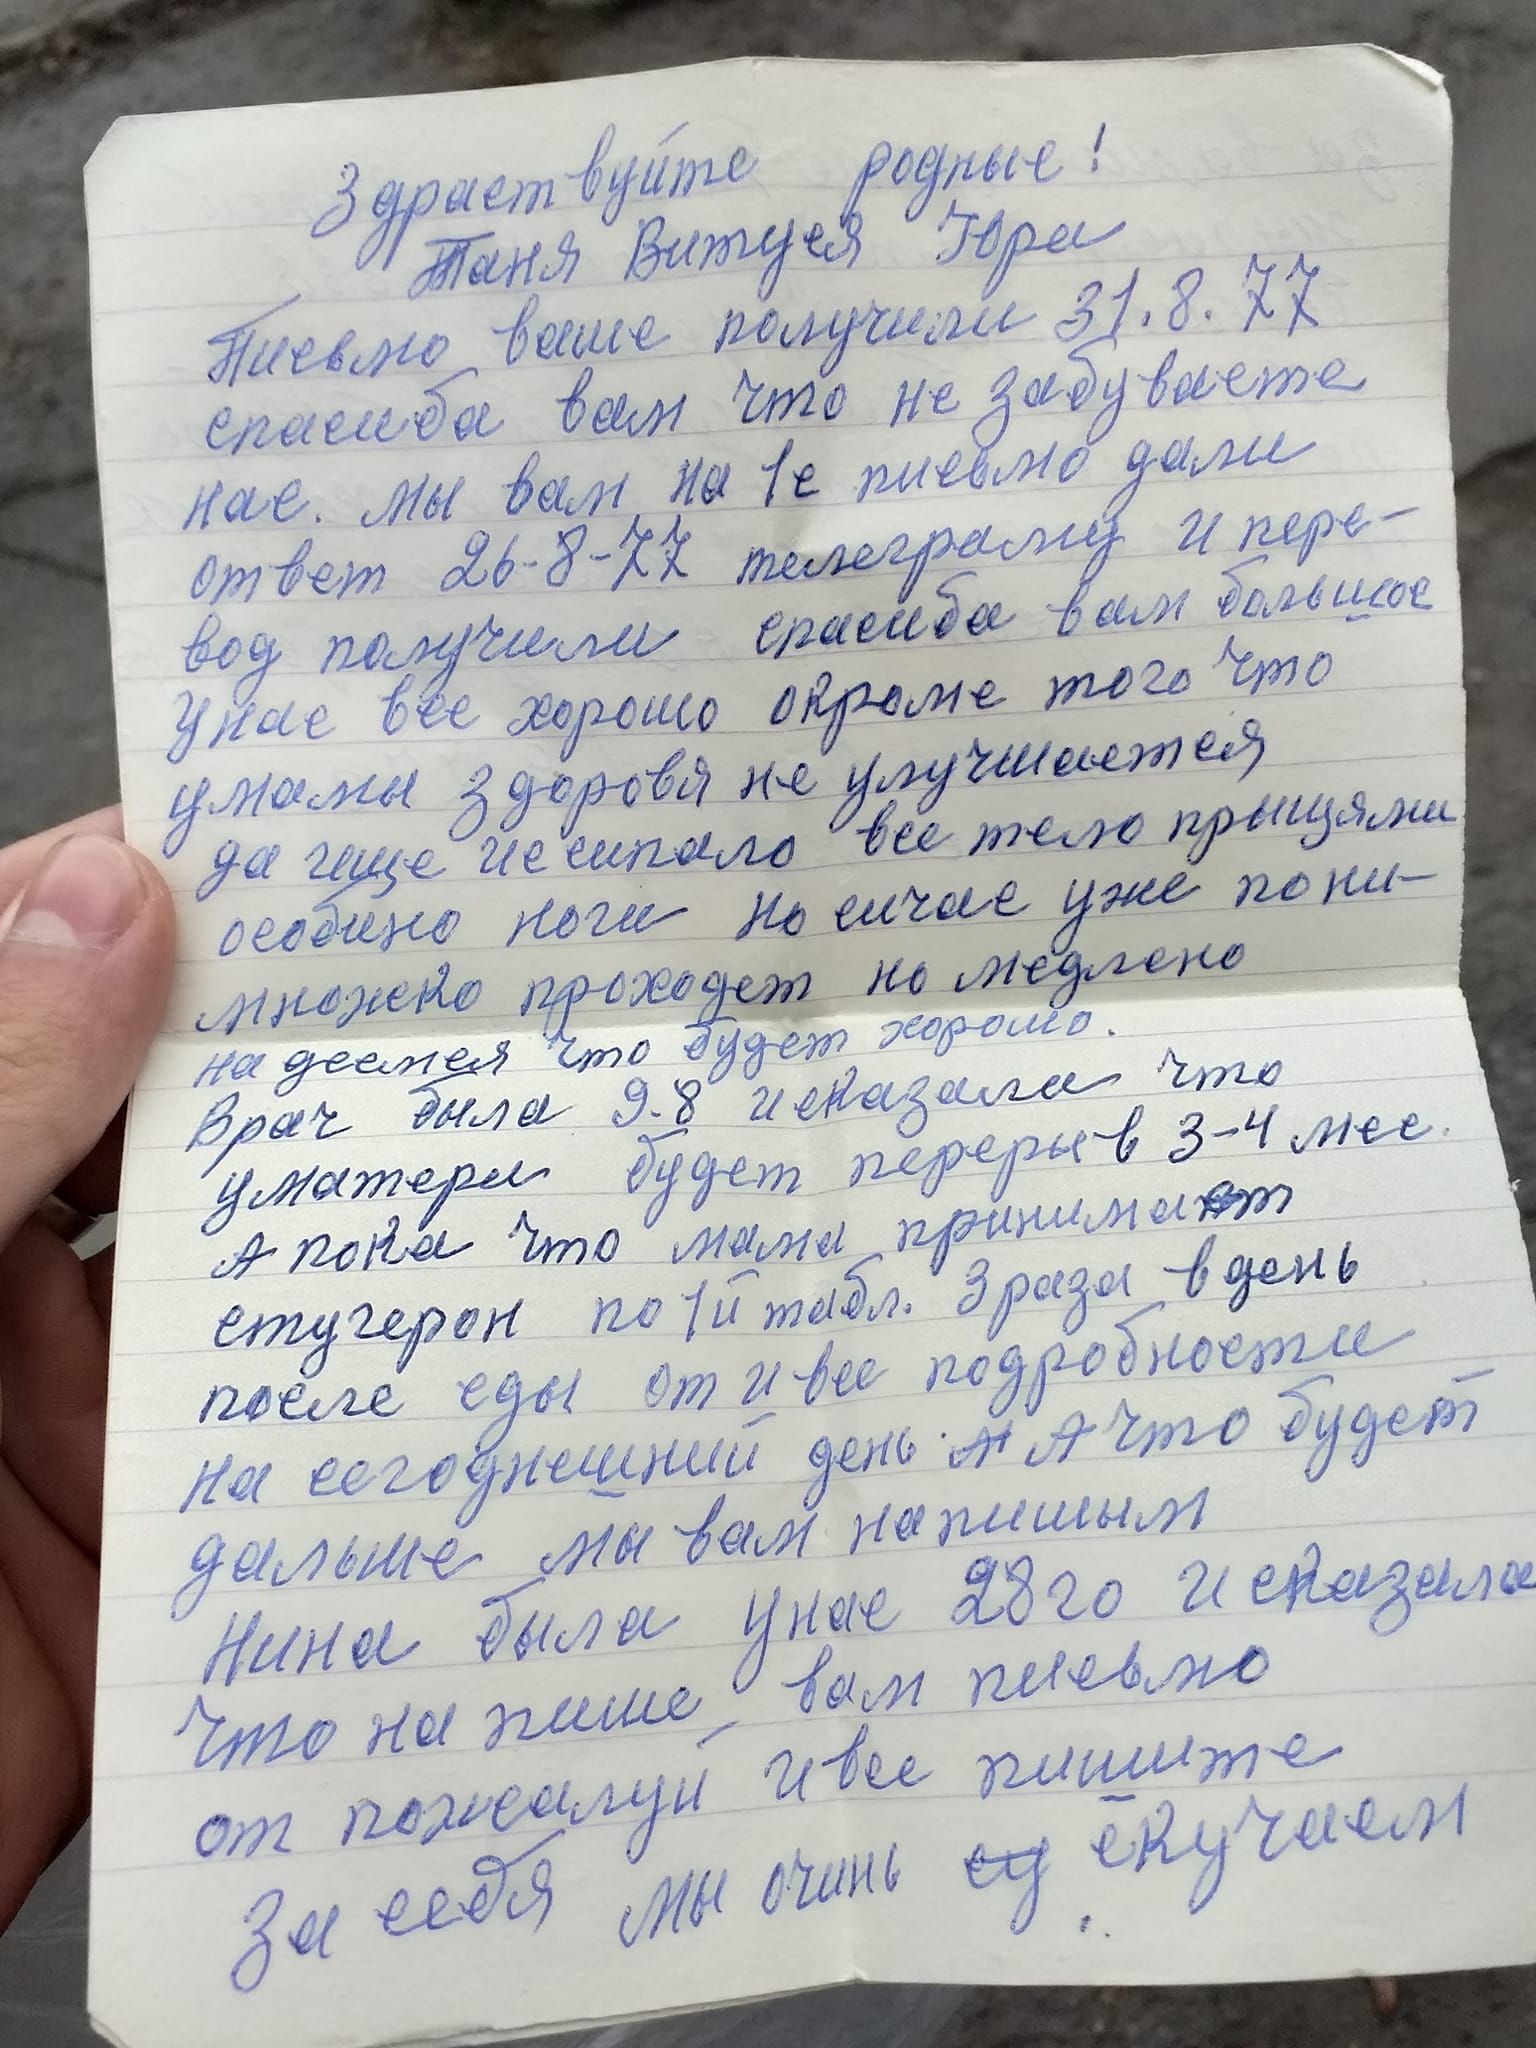 Здраствуйте родные!
Таня Витуся Юра
Письмо ваше получили 31.8.77
спасиба вам что не забуваете
нас. мы вам на 1е письмо дали
ответ 26-8-77 телеграму и пере-
вод получили спасиба вам большое
У нас все хорошо окроме того что
у мамы здоровя не улучшается
да ище исипало все тело прыщями
особино ноги но сичас уже пони-
множко проходет но медлено
на деемся что будет хорошо.
Врач была 9.8 и сказала что
у матери будет перерыв 3-4 мес.
А пока что мама принимает
стугерон по 1й табл. 3 раза в день
после еды от и все подробности
на сегоднешний день. А А что будет
дальше мы вам напишым
Нина была у нас 28го и сказала
что на пише вам письмо
от пожалуй и все пишите
За себя мы очинь су скучаем